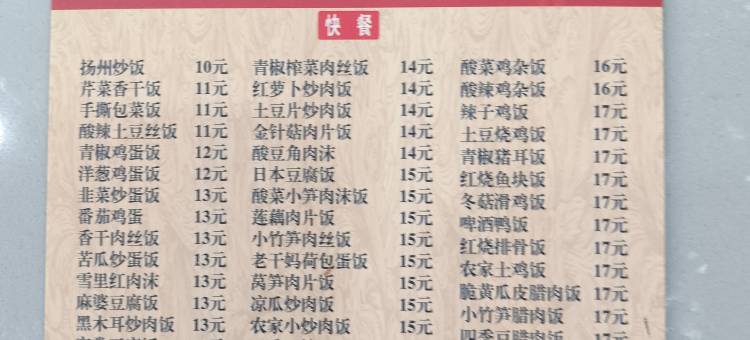 快餐
扬州炒饭 10元
芹菜香干饭 11元
手撕包菜饭 11元
酸辣土豆丝饭 11元
青椒鸡蛋饭 12元
洋葱鸡蛋饭 12元
韭菜炒蛋饭 13元
番茄鸡蛋 13元
香干肉丝饭 13元
苦瓜炒蛋饭 13元
雪里红肉沫 13元
麻婆豆腐饭 13元
黑木耳炒肉饭 13元
青椒榨菜肉丝饭 14元
红萝卜炒肉饭 14元
土豆片炒肉饭 14元
金针菇肉片饭 14元
酸豆角肉沫 14元
日本豆腐饭 15元
酸菜小笋肉沫饭 15元
莲藕肉片饭 15元
小竹笋肉丝饭 15元
老干妈荷包蛋饭 15元
莴笋肉片饭 15元
凉瓜炒肉饭 15元
农家小炒肉饭 15元
酸菜鸡杂饭 16元
酸辣鸡杂饭 16元
辣子鸡饭 17元
土豆烧鸡饭 17元
青椒猪耳饭 17元
红烧鱼块饭 17元
冬菇滑鸡饭 17元
啤酒鸭饭 17元
红烧排骨饭 17元
农家土鸡饭 17元
脆黄瓜皮腊肉饭 17元
小竹笋腊肉饭 17元
四季豆腊肉饭 17元